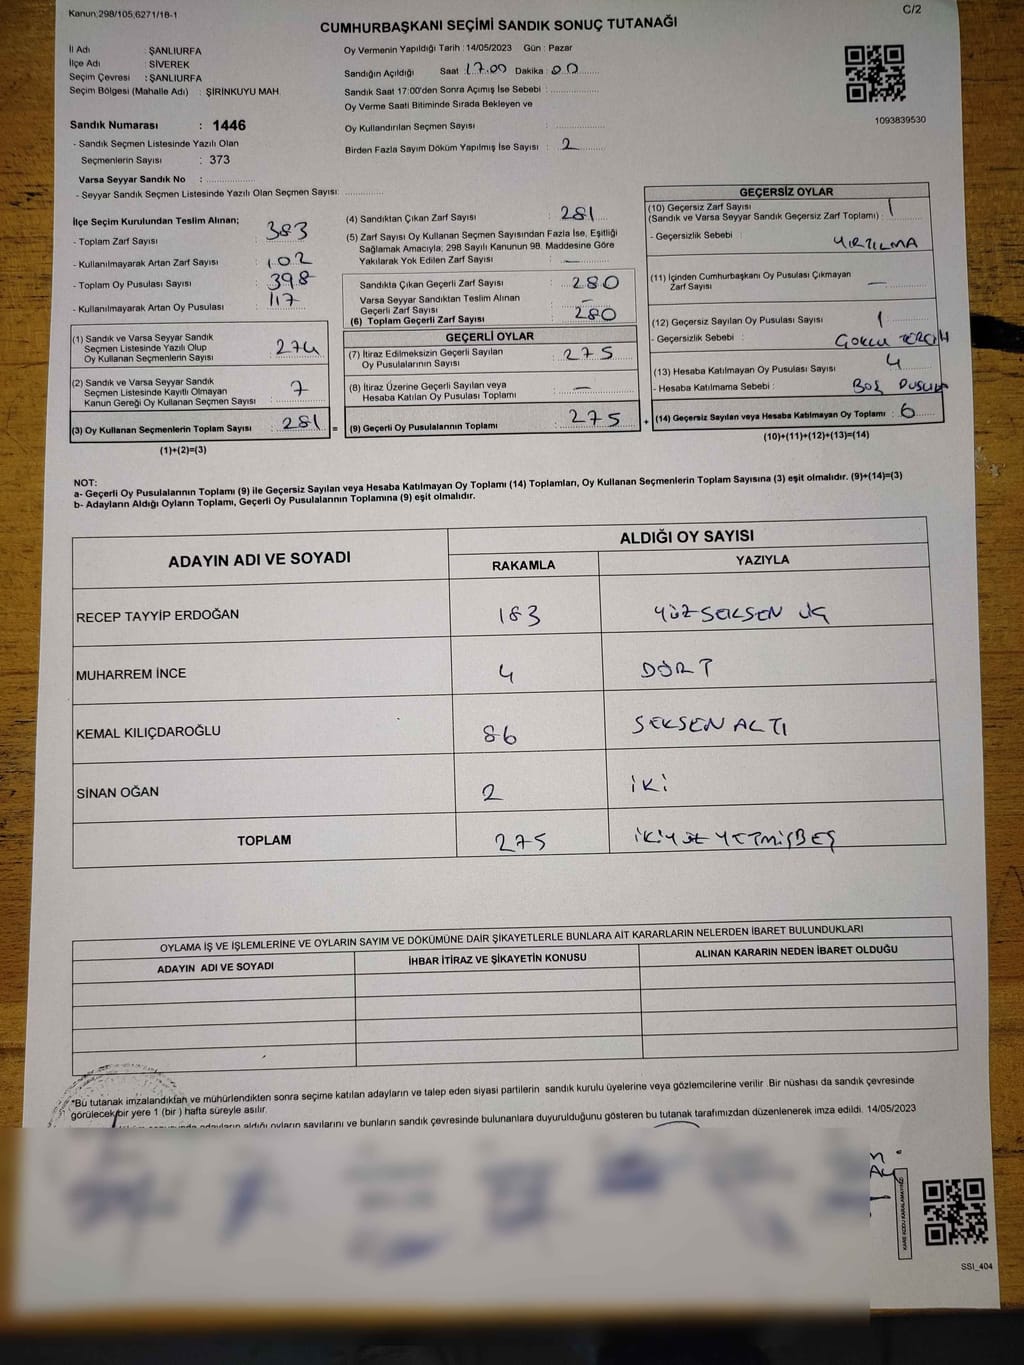 Kanun;298/105,6271/18-1
C/2
CUMHURBAŞKANI SEÇİMİ SANDIK SONUÇ TUTANAĞI
İl Adı : ŞANLIURFA
İlçe Adı : SİVEREK
Seçim Çevresi : ŞANLIURFA
Seçim Bölgesi (Mahalle Adı) : ŞİRİNKUYU MAH.
Sandık Numarası : 1446
- Sandık Seçmen Listesinde Yazılı Olan
Seçmenlerin Sayısı : 373
Varsa Seyyar Sandık No :
- Seyyar Sandık Seçmen Listesinde Yazılı Olan Seçmen Sayısı:
Oy Vermenin Yapıldığı Tarih : 14/05/2023 Gün : Pazar
Sandığın Açıldığı Saat : 17.00 Dakika : 00
Sandık Saat 17:00'den Sonra Açımış İse Sebebi :
Oy Verme Saati Bitiminde Sırada Bekleyen ve
Oy Kullandırılan Seçmen Sayısı :
Birden Fazla Sayım Döküm Yapılmış İse Sayısı : 2
1093839530
İlçe Seçim Kurulundan Teslim Alınan;
- Toplam Zarf Sayısı : 383
- Kullanılmayarak Artan Zarf Sayısı : 102
- Toplam Oy Pusulası Sayısı : 398
- Kullanılmayarak Artan Oy Pusulası : 117
(1) Sandık ve Varsa Seyyar Sandık
Seçmen Listesinde Yazılı Olup
Oy Kullanan Seçmenlerin Sayısı : 274
(2) Sandık ve Varsa Seyyar Sandık
Seçmen Listesinde Kayıtlı Olmayan
Kanun Gereği Oy Kullanan Seçmen Sayısı : 7
(3) Oy Kullanan Seçmenlerin Toplam Sayısı : 281
=
(1)+(2)=(3)
(4) Sandıktan Çıkan Zarf Sayısı : 281
(5) Zarf Sayısı Oy Kullanan Seçmen Sayısından Fazla İse, Eşitliği
Sağlamak Amacıyla; 298 Sayılı Kanunun 98. Maddesine Göre
Yakılarak Yok Edilen Zarf Sayısı : —
Sandıkta Çıkan Geçerli Zarf Sayısı : 280
Varsa Seyyar Sandıktan Teslim Alınan
Geçerli Zarf Sayısı : —
(6) Toplam Geçerli Zarf Sayısı : 280
GEÇERLİ OYLAR
(7) İtiraz Edilmeksizin Geçerli Sayılan
Oy Pusulalarının Sayısı : 275
(8) İtiraz Üzerine Geçerli Sayılan veya
Hesaba Katılan Oy Pusulası Toplamı : —
(9) Geçerli Oy Pusulalarının Toplamı : 275
+
GEÇERSİZ OYLAR
(10) Geçersiz Zarf Sayısı
(Sandık ve Varsa Seyyar Sandık Geçersiz Zarf Toplamı) : 1
- Geçersizlik Sebebi : YIRTILMA
(11) İçinden Cumhurbaşkanı Oy Pusulası Çıkmayan
Zarf Sayısı : —
(12) Geçersiz Sayılan Oy Pusulası Sayısı : 1
- Geçersizlik Sebebi : TERCİH
(13) Hesaba Katılmayan Oy Pusulası Sayısı : 4
- Hesaba Katılmama Sebebi : BOŞ PUSULA
(14) Geçersiz Sayılan veya Hesaba Katılmayan Oy Toplamı : 6
(10)+(11)+(12)+(13)=(14)
NOT:
a- Geçerli Oy Pusulalarının Toplamı (9) ile Geçersiz Sayılan veya Hesaba Katılmayan Oy Toplamı (14) Toplamları, Oy Kullanan Seçmenlerin Toplam Sayısına (3) eşit olmalıdır. (9)+(14)=(3)
b- Adayların Aldığı Oyların Toplamı, Geçerli Oy Pusulalarının Toplamına (9) eşit olmalıdır.
ADAYIN ADI VE SOYADI
ALDIĞI OY SAYISI
RAKAMLA YAZIYLA
RECEP TAYYİP ERDOĞAN 183 YÜZ SEKSEN ÜÇ
MUHARREM İNCE 4 DÖRT
KEMAL KILIÇDAROĞLU 86 SEKSEN ALTI
SİNAN OĞAN 2 İKİ
TOPLAM 275 İKİYÜZ YETMİŞBEŞ
OYLAMA İŞ VE İŞLEMLERİNE VE OYLARIN SAYIM VE DÖKÜMÜNE DAİR ŞİKAYETLERLE BUNLARA AİT KARARLARIN NELERDEN İBARET BULUNDUKLARI
ADAYIN ADI VE SOYADI İHBAR İTİRAZ VE ŞİKAYETİN KONUSU ALINAN KARARIN NEDEN İBARET OLDUĞU
*Bu tutanak imzalandıktan ve mühürlendikten sonra seçime katılan adayların ve talep eden siyasi partilerin sandık kurulu üyelerine veya gözlemcilerine verilir. Bir nüshası da sandık çevresinde
görülecek bir yere 1 (bir ) hafta süreyle asılır.
adayların aldığı oyların sayılarını ve bunların sandık çevresinde bulunanlara duyurulduğunu gösteren bu tutanak tarafımızdan düzenlenerek imza edildi. 14/05/2023
KARE KODU KARALAMAYINIZ
SSI_404